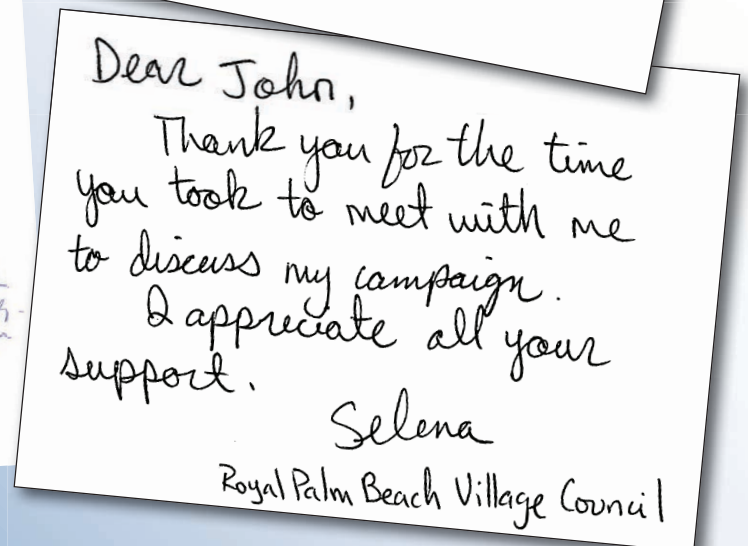 Dear John,
Thank you for the time
you took to meet with me
to discuss my campaign.
I appreciate all your
support.
Selena
Royal Palm Beach Village Council